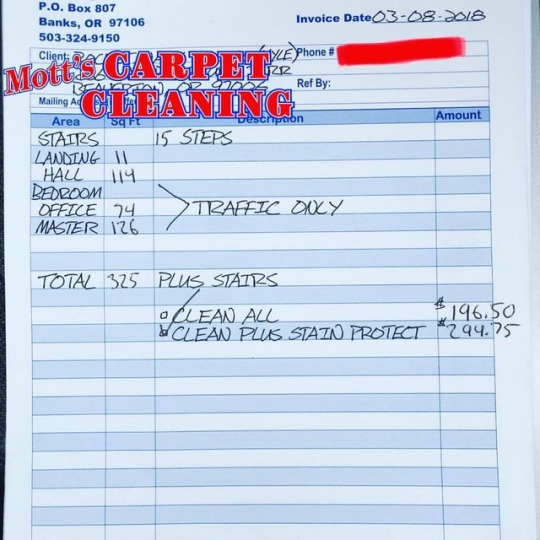 P.O. Box 807
Banks, OR 97106
503-324-9150
Invoice Date 03-08-2018
Client:
Phone #
Ref By:
BEAVERTON, OR
Mailing
Mott's CARPET CLEANING
Area Sq Ft Description Amount
STAIRS 15 STEPS
LANDING 11
HALL 114
BEDROOM
OFFICE 74 TRAFFIC ONLY
MASTER 126
TOTAL 325 PLUS STAIRS
CLEAN ALL $196.50
CLEAN PLUS STAIN PROTECT $294.75